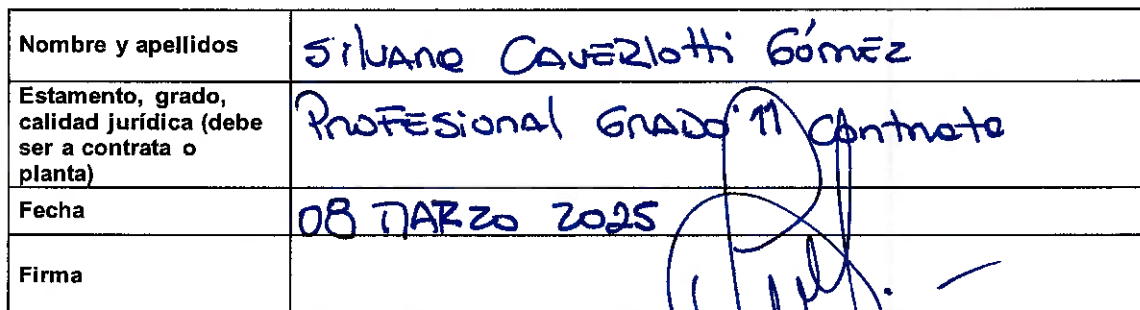 Nombre y apellidos
Silvana Caverlotti Gómez
Estamento, grado,
calidad jurídica (debe
ser a contrata o
planta)
Profesional Grado 11 Contrata
Fecha
08 MARZO 2025
Firma